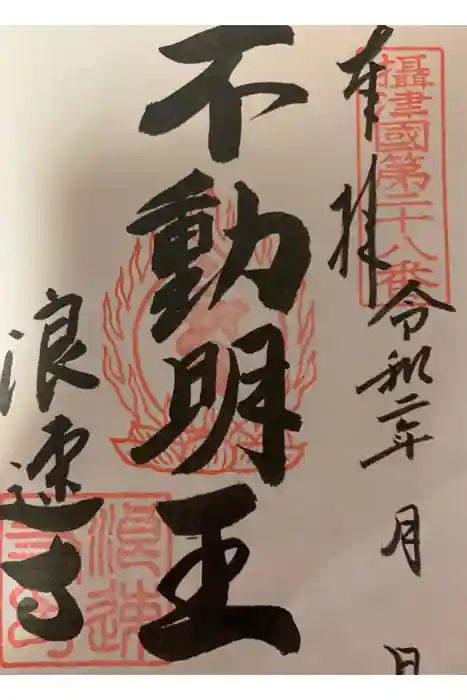 奉拝
攝津國第二十八番
令和二年 月 日
不動明王
浪速寺